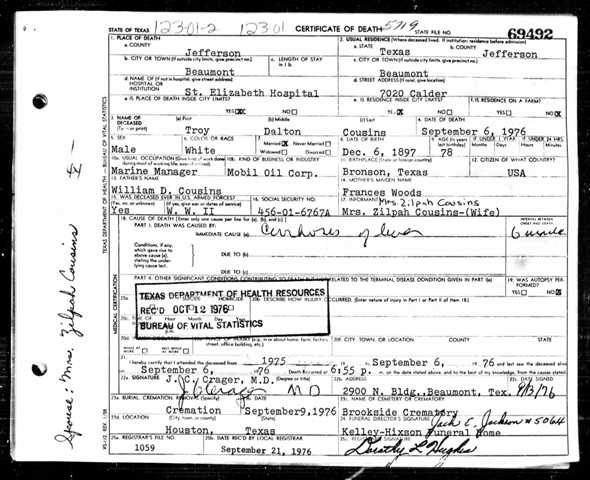 STATE OF TEXAS 12301-2 12301 CERTIFICATE OF DEATH 5719 STATE FILE NO. 69492
1. PLACE OF DEATH 2. USUAL RESIDENCE (Where deceased lived. If institution: residence before admission)
a. COUNTY Jefferson a. STATE Texas b. COUNTY Jefferson
b. CITY OR TOWN (If outside city limits, give precinct no.) c. LENGTH OF STAY c. CITY OR TOWN (If outside city limits, give precinct no.)
Beaumont Beaumont
d. NAME OF (If not in hospital, give street address) HOSPITAL OR INSTITUTION d. STREET ADDRESS
St. Elizabeth Hospital 7020 Calder
e. IS PLACE OF DEATH INSIDE CITY LIMITS? YES NO e. IS RESIDENCE INSIDE CITY LIMITS? YES NO f. IS RESIDENCE ON A FARM? YES NO
3. NAME OF DECEASED (Type or print) (a) First (b) Middle (c) Last 4. DATE OF DEATH
Troy Dalton Cousins September 6, 1976
5. SEX 6. COLOR OR RACE 7. Married Never Married Widowed Divorced 8. DATE OF BIRTH 9. AGE (In years last birthday) IF UNDER 1 YEAR Months Days IF UNDER 24 HRS. Hours Min.
Male White Dec. 6, 1897 78
10a. USUAL OCCUPATION (Give kind of work done during most of working life, even if retired) 10b. KIND OF BUSINESS OR INDUSTRY 11. BIRTHPLACE (State or foreign country) 12. CITIZEN OF WHAT COUNTRY?
Marine Manager Mobil Oil Corp. Bronson, Texas USA
13. FATHER'S NAME 14. MOTHER'S MAIDEN NAME
William D. Cousins Frances Woods
15. WAS DECEASED EVER IN U.S. ARMED FORCES? (Yes, no, or unknown) (If yes, give war or dates of service) 16. SOCIAL SECURITY NO. 17. INFORMANT Mrs. Zilpah Cousins
Yes W. W. II 456-01-6767A Mrs. Zilpah Cousins-(Wife)
18. CAUSE OF DEATH (Enter only one cause per line for (a), (b), and (c).) INTERVAL BETWEEN ONSET AND DEATH
PART I. DEATH WAS CAUSED BY:
IMMEDIATE CAUSE (a) of liver
Conditions, if any, which gave rise to above cause (a), stating the underlying cause last. DUE TO (b)
DUE TO (c)
PART II. OTHER SIGNIFICANT CONDITIONS CONTRIBUTING TO DEATH BUT NOT RELATED TO THE TERMINAL DISEASE CONDITION GIVEN IN PART I(a) 19. WAS AUTOPSY PERFORMED? YES NO
TEXAS DEPARTMENT OF HEALTH RESOURCES
REC'D OCT 12 1976
BUREAU OF VITAL STATISTICS
20b. DESCRIBE HOW INJURY OCCURRED. (Enter nature of injury in Part I or Part II of item 18.)
20f. CITY, TOWN, OR LOCATION COUNTY STATE
21. I hereby certify that I attended the deceased from 1975 September 6, 1976 and last saw the deceased alive
September 6, 1976 Death occurred at 6:55 p. m. on the date stated above, and to the best of my knowledge, from the causes stated.
22a. SIGNATURE J. C. Crager, M.D. (Degree or title) 22b. ADDRESS 22c. DATE SIGNED
J C Crager M D 2900 N. Bldg., Beaumont, Tex.
23a. BURIAL, CREMATION, REMOVAL (Specify) 23b. DATE 23c. NAME OF CEMETERY OR CREMATORY
Cremation September 9, 1976 Brookside Crematory
23d. LOCATION (City, town, or county) (State) 24. FUNERAL DIRECTOR'S SIGNATURE Jack C. Jackson #5064
Houston, Texas Kelley-Hixson Funeral Home
25a. REGISTRAR'S FILE NO. 25b. DATE REC'D BY LOCAL REGISTRAR 25c. REGISTRAR'S SIGNATURE
1059 September 21, 1976 Dorothy L Hughes
TEXAS DEPARTMENT OF HEALTH — BUREAU OF VITAL STATISTICS
MEDICAL CERTIFICATION
Spouse: Mrs. Zilpah Cousins